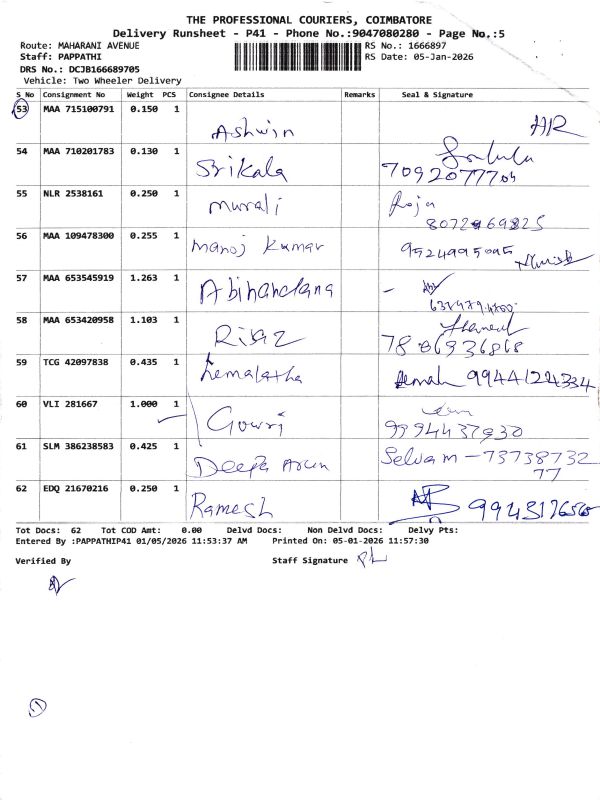 THE PROFESSIONAL COURIERS, COIMBATORE
Delivery Runsheet - P41 - Phone No.:9047080280 - Page No.:5
Route: MAHARANI AVENUE RS No.: 1666897
Staff: PAPPATHI RS Date: 05-Jan-2026
DRS No.: DCJB166689705
Vehicle: Two Wheeler Delivery
S No Consignment No Weight PCS Consignee Details Remarks Seal & Signature
53 MAA 715100791 0.150 1 Ashwin
54 MAA 710201783 0.130 1 Srikala
55 NLR 2538161 0.250 1 murali Roja
56 MAA 109478300 0.255 1 Manoj Kumar 9524995095
57 MAA 653545919 1.263 1 Abinandana
58 MAA 653420958 1.103 1 Riyaz
59 TCG 42097838 0.435 1 hemalatha 9944122334
60 VLI 281667 1.000 1 Gowri 9994437930
61 SLM 386238583 0.425 1 Deepa Arun Selvam - 73738732
77
62 EDQ 21670216 0.250 1 Ramesh
Tot Docs: 62 Tot COD Amt: 0.00 Delvd Docs: Non Delvd Docs: Delvy Pts:
Entered By :PAPPATHIP41 01/05/2026 11:53:37 AM Printed On: 05-01-2026 11:57:30
Verified By Staff Signature